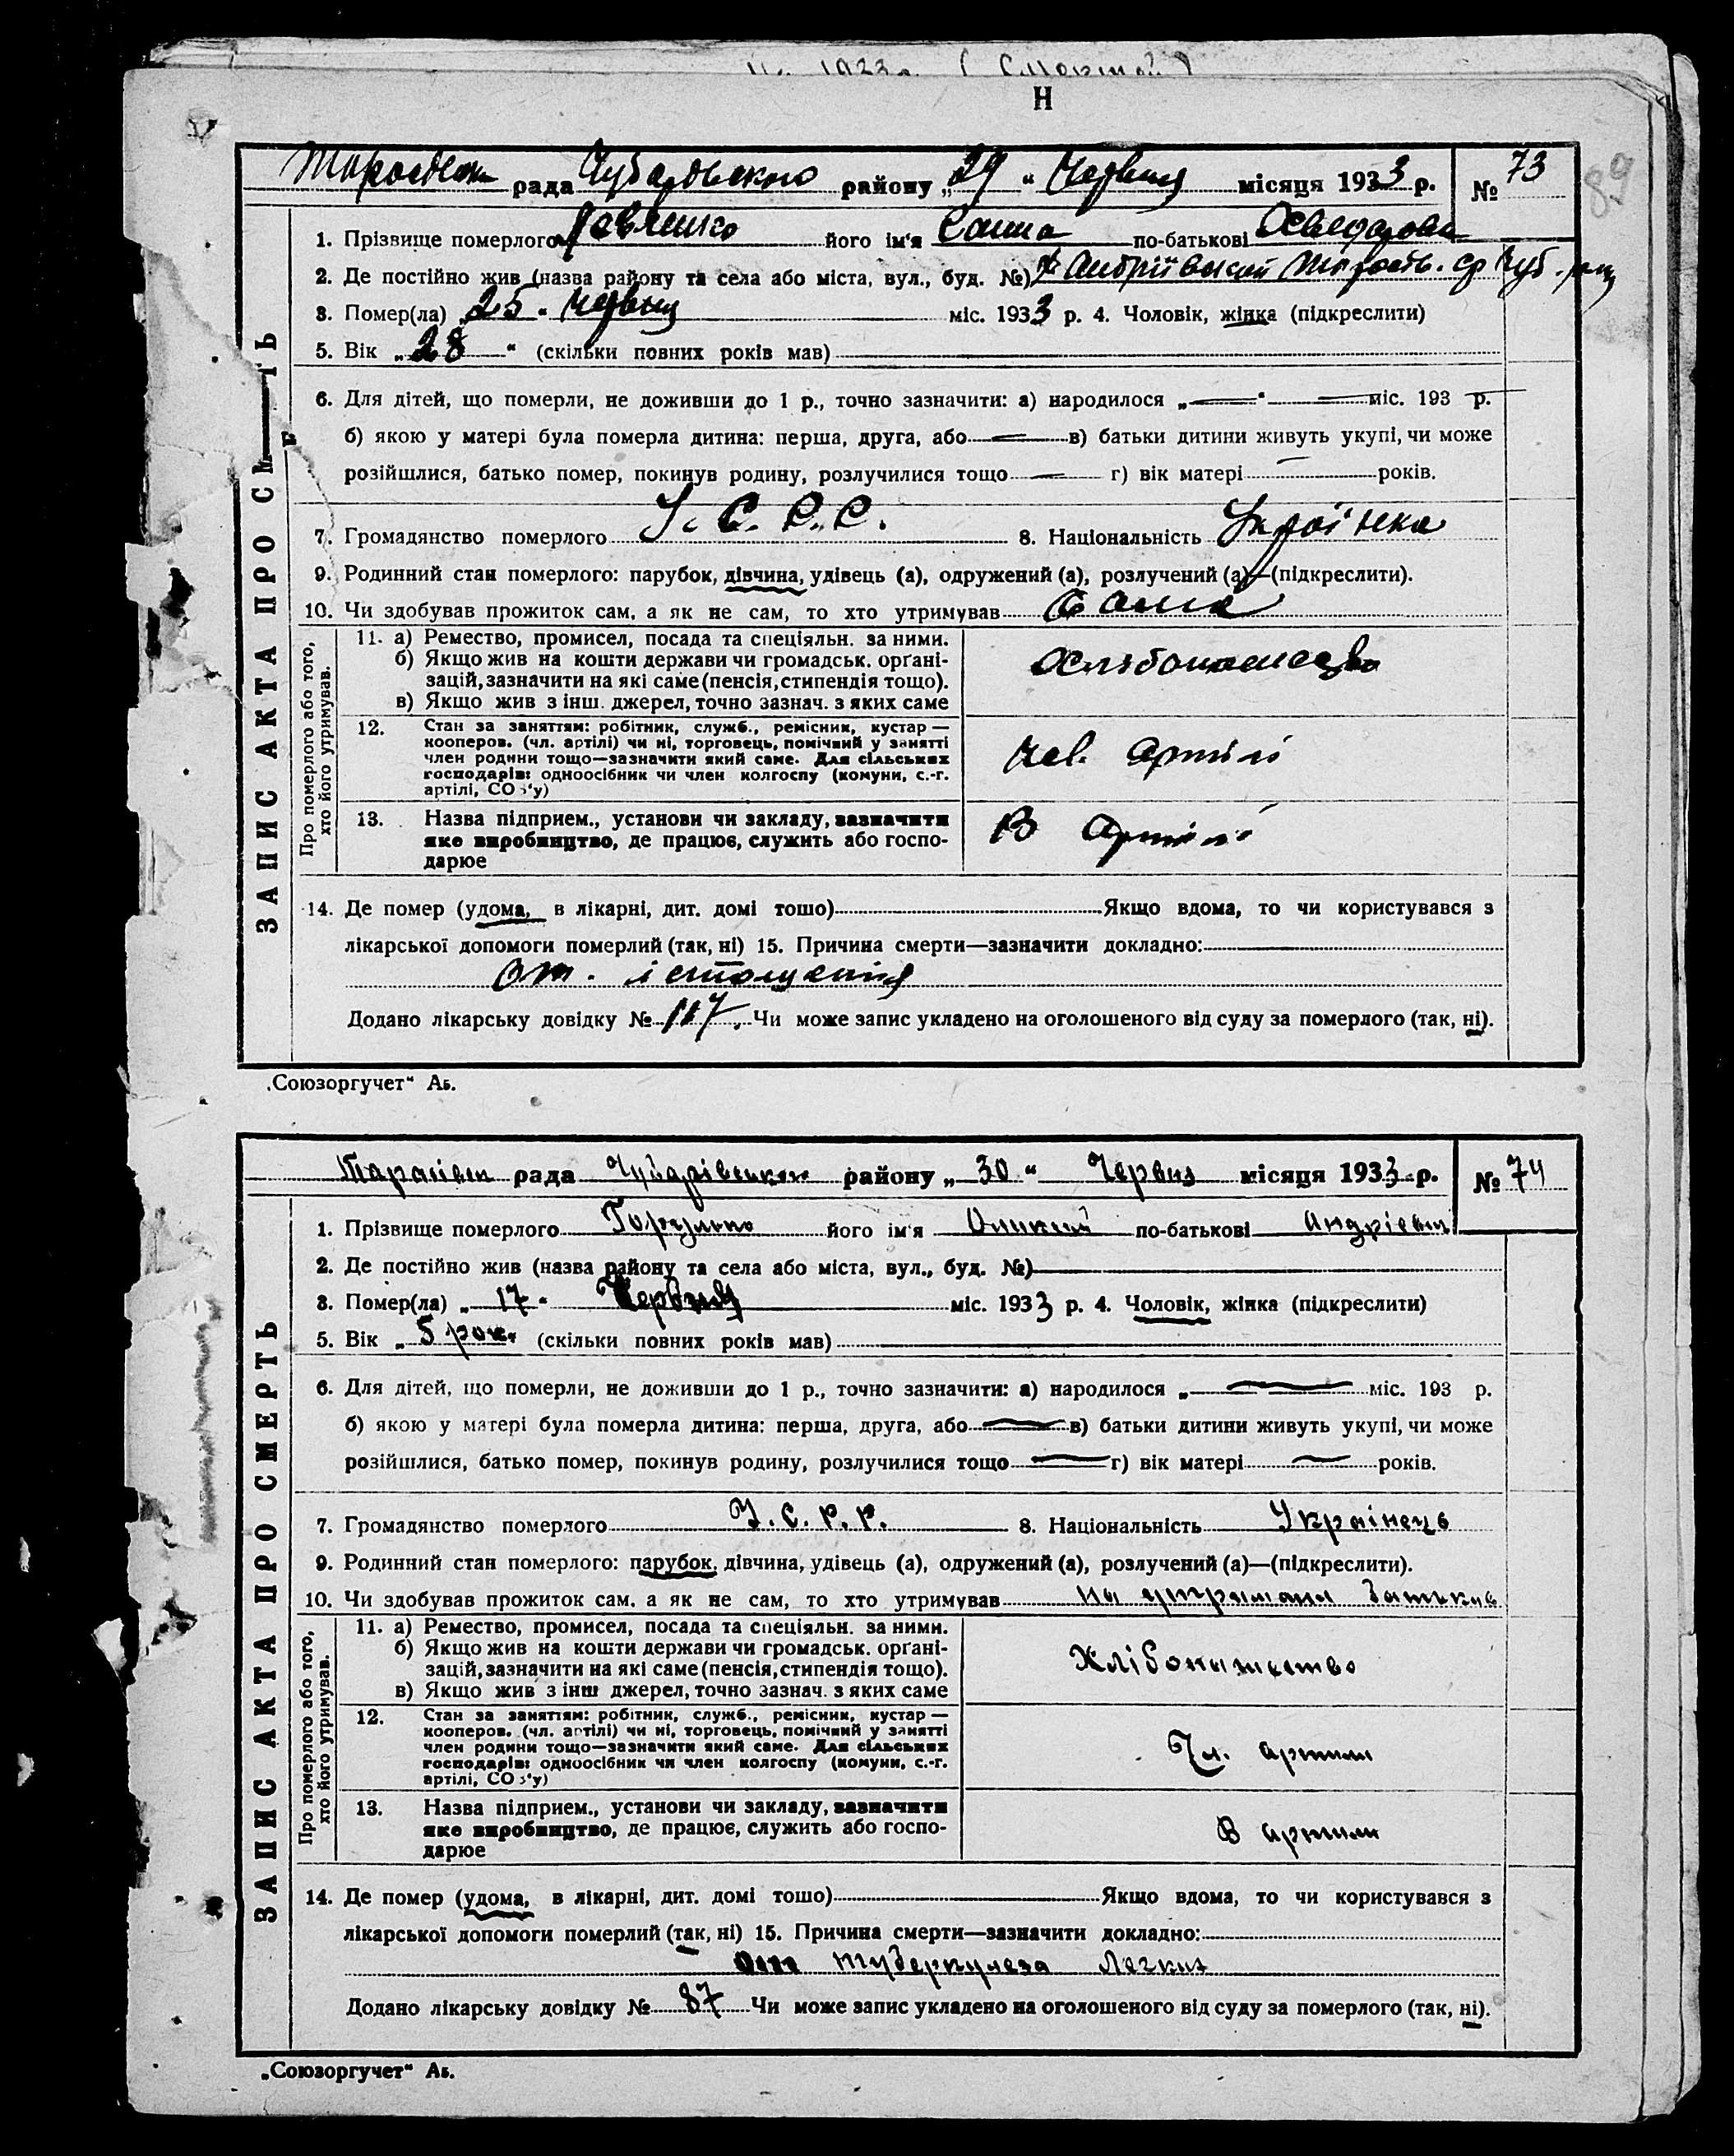 Н
рада Чубарівського району „29“ Червня місяця 1933 р. № 73
89
1. Прізвище померлого його ім'я по-батькові
2. Де постійно жив (назва району та села або міста, вул., буд. №)
3. Помер(ла) „25“ червня міс. 1933 р. 4. Чоловік, жінка (підкреслити)
5. Вік „28“ (скільки повних років мав)
6. Для дітей, що померли, не доживши до 1 р., точно зазначити: а) народилося „—“ — міс. 193 р.
б) якою у матері була померла дитина: перша, друга, або — в) батьки дитини живуть укупі, чи може
розійшлися, батько помер, покинув родину, розлучилися тощо — г) вік матері — років.
7. Громадянство померлого У. С. Р. Р. 8. Національність Українка
9. Родинний стан померлого: парубок, дівчина, удівець (а), одружений (а), розлучений (а)—(підкреслити).
10. Чи здобував прожиток сам, а як не сам, то хто утримував Сама
ЗАПИС АКТА ПРО СМ ТЬ
Про померлого або того, хто його утримував.
11. а) Ремество, промисел, посада та спеціяльн. за ними.
б) Якщо жив на кошти держави чи громадськ. орґані-
зацій, зазначити на які саме (пенсія, стипендія тощо).
в) Якщо жив з інш. джерел, точно зазнач. з яких саме
12. Стан за заняттям: робітник, служб., ремісник, кустар —
кооперов. (чл. артілі) чи ні, торговець, помічний у занятті
член родини тощо—зазначити який саме. Для сільських
господарів: одноосібник чи член колгоспу (комуни, с.-г.
артілі, СО з'у)
артілі
13. Назва підприєм., установи чи закладу, зазначити
яке виробництво, де працює, служить або госпо-
дарює
В артілі
14. Де помер (удома, в лікарні, дит. домі тошо) Якщо вдома, то чи користувався з
лікарської допомоги померлий (так, ні) 15. Причина смерти—зазначити докладно:
от. істощения
Додано лікарську довідку № 117. Чи може запис укладено на оголошеного від суду за померлого (так, ні).
„Союзоргучет“ Аб.
рада Чубарівського району „30“ Червня місяця 1933 р. № 74
1. Прізвище померлого його ім'я по-батькові Андрієвич
2. Де постійно жив (назва району та села або міста, вул., буд. №)
3. Помер(ла) „17“ Червня міс. 1933 р. 4. Чоловік, жінка (підкреслити)
5. Вік „5 рок. (скільки повних років мав)
6. Для дітей, що померли, не доживши до 1 р., точно зазначити: а) народилося „— міс. 193 р.
б) якою у матері була померла дитина: перша, друга, або — в) батьки дитини живуть укупі, чи може
розійшлися, батько помер, покинув родину, розлучилися тощо — г) вік матері — років.
7. Громадянство померлого У. С. Р. Р. 8. Національність Украінець
9. Родинний стан померлого: парубок, дівчина, удівець (а), одружений (а), розлучений (а)—(підкреслити).
10. Чи здобував прожиток сам, а як не сам, то хто утримував на батьків
ЗАПИС АКТА ПРО СМЕРТЬ
Про померлого або того, хто його утримував.
11. а) Ремество, промисел, посада та спеціяльн. за ними.
б) Якщо жив на кошти держави чи громадськ. орґані-
зацій, зазначити на які саме (пенсія, стипендія тощо).
в) Якщо жив з інш джерел, точно зазнач. з яких саме
12. Стан за заняттям: робітник, служб., ремісник, кустар —
кооперов. (чл. артілі) чи ні, торговець, помічний у занятті
член родини тощо—зазначити який саме. Для сільських
господарів: одноосібник чи член колгоспу (комуни, с.-г.
артілі, СО з'у)
Чл. артили
13. Назва підприєм., установи чи закладу, зазначити
яке виробництво, де працює, служить або госпо-
дарює
В артили
14. Де помер (удома, в лікарні, дит. домі тошо) Якщо вдома, то чи користувався з
лікарської допомоги померлий (так, ні) 15. Причина смерти—зазначити докладно:
От туберкулеза Легких
Додано лікарську довідку № 87 Чи може запис укладено на оголошеного від суду за померлого (так, ні).
„Союзоргучет“ Аб.